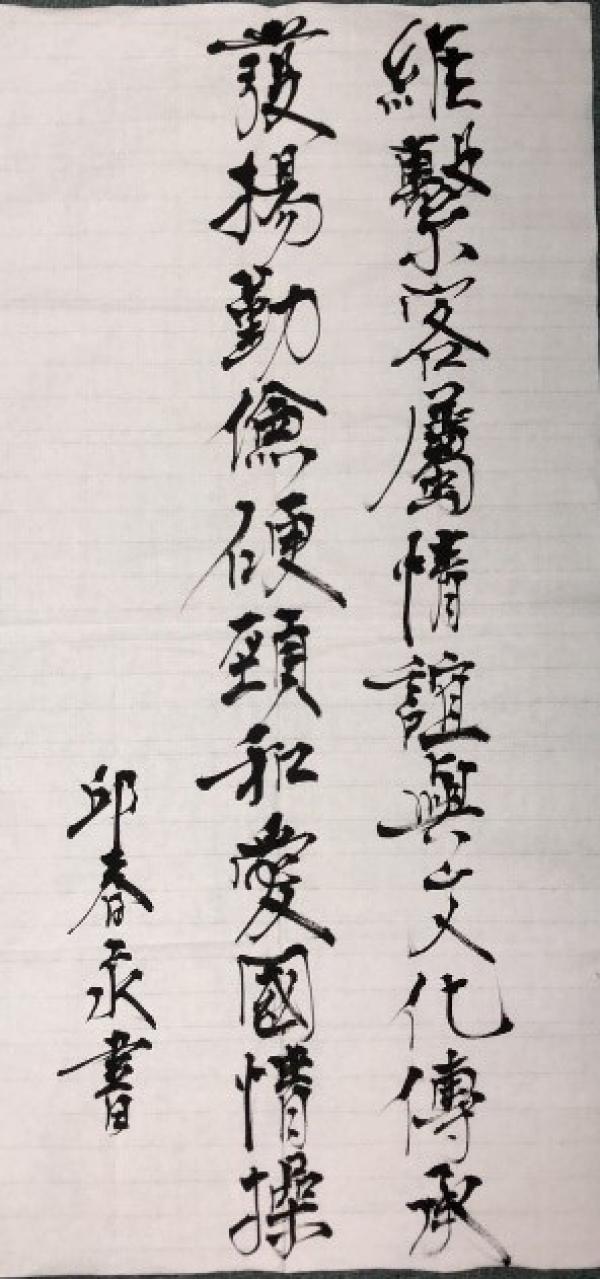 維繫客屬情誼與文化傳承
發揚勤儉硬頸和愛國情操
邱春永書